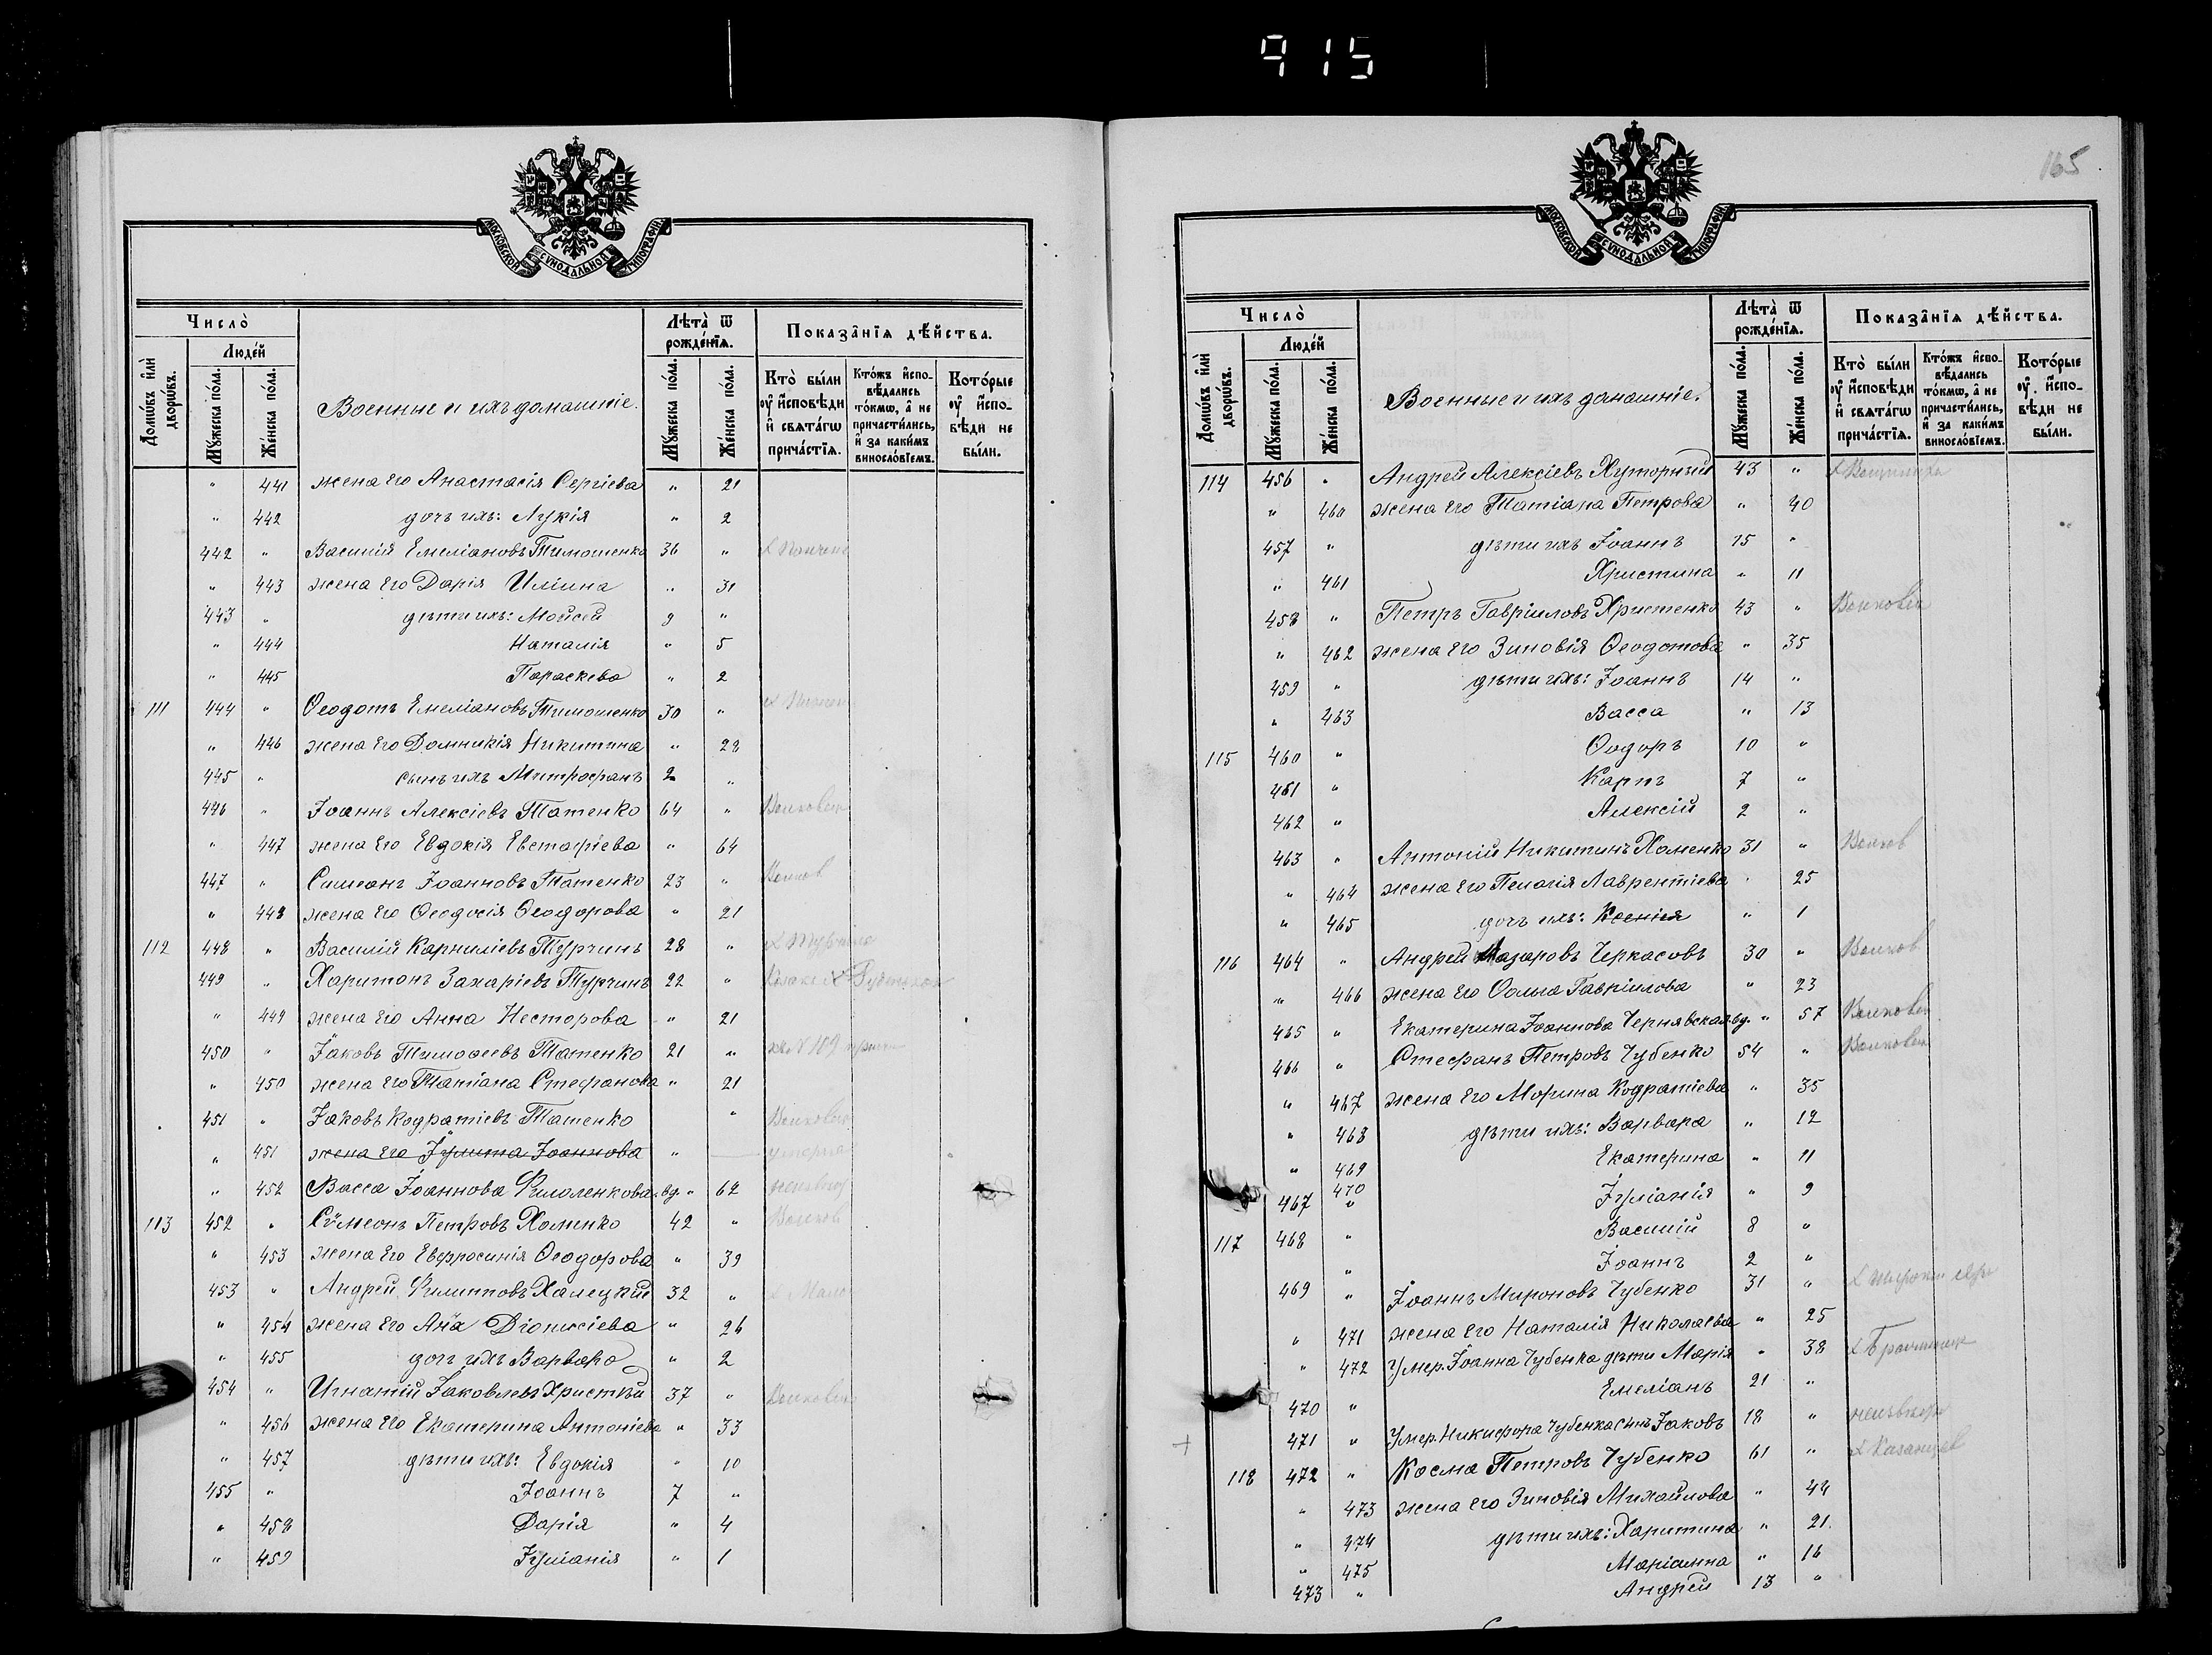 915
МОСКОВСКОЙ СУНОДАЛЬНОЙ ТИПОГРАФІИ
Число̀
Домѡ́въ и҆лѝ дворѡ́въ.
Люде́й
Мꙋ́жеска по́ла.
Же́нска по́ла.
Военные и ихъ домашніе.
Лѣ́та ѿ рожде́нїѧ.
Мꙋ́жеска по́ла.
Же́нска по́ла.
Показа̑нїѧ дѣ́йства.
Кто̀ бы́ли ᲂу҆ и҆сповѣ́ди и҆ свѧта́гѡ прича́стїѧ.
Кто́жъ и҆сповѣ́дались то́кмѡ, а҆ не причасти́лись, и҆ за каки́мъ винносло́вїемъ.
Кото́рые ᲂу҆ и҆сповѣ́ди не бы́ли.
" 441 жена его Анастасія Сергіева " 21
" 442 дочь ихъ: Лукія " 2
442 " Василій Емеліановъ Тимошенко 36 "
" 443 жена его Дарія Иліина " 31
443 " дѣти ихъ: Мойсей 9 "
" 444 Наталія " 5
" 445 Параскева " 2
111 444 " Ѳеодотъ Емеліановъ Тимошенко 30 "
" 446 жена его Домникія Никитина " 28
445 " сынъ ихъ Митрофанъ 2 "
446 " Іоаннъ Алексіевъ Татенко 64 " Волховск
" 447 жена его Евдокія Евстафіева " 64
447 " Симеонъ Іоанновъ Татенко 23 " Волхов
" 448 жена его Ѳеодосія Ѳеодорова " 21
112 448 " Василій Карниліевъ Турчинъ 28 "
449 " Харитонъ Захаріевъ Турчинъ 22 "
" 449 жена его Анна Несторова " 21
450 " Іаковъ Тимоѳеевъ Татенко 21 " № 109
" 450 жена его Татіана Стефанова " 21
451 " Іаковъ Кодратіевъ Татенко " Волховск
" 451 жена его Іулита Іоаннова " умерла
" 452 Васса Іоаннова Филоленкова вд. " 62 неизвѣстн
113 452 " Сѷмеонъ Петровъ Хоменко 42 " Волхов
" 453 жена его Евфросинія Ѳеодорова " 39
453 " Андрей Филипповъ Халецкій 32 "
" 454 жена его Анна Діонисіева " 26
" 455 дочь ихъ Варвара " 2
454 " Игнатій Іаковлевъ Христкій 37 " Волховск
" 456 жена его Екатерина Антоніева " 33
" 457 дѣти ихъ: Евдокія " 10
455 " Іоаннъ 7 "
" 458 Дарія " 4
" 459 Іуліанія " 1
165
МОСКОВСКОЙ СУНОДАЛЬНОЙ ТИПОГРАФІИ
Число̀
Домѡ́въ и҆лѝ дворѡ́въ.
Люде́й
Мꙋ́жеска по́ла.
Же́нска по́ла.
Военные и ихъ домашніе.
Лѣ́та ѿ рожде́нїѧ.
Мꙋ́жеска по́ла.
Же́нска по́ла.
Показа̑нїѧ дѣ́йства.
Кто̀ бы́ли ᲂу҆ и҆сповѣ́ди и҆ свѧта́гѡ прича́стїѧ.
Кто́жъ и҆сповѣ́дались то́кмѡ, а҆ не причасти́лись, и҆ за каки́мъ винносло́вїемъ.
Кото́рые ᲂу҆ и҆сповѣ́ди не бы́ли.
114 456 " Андрей Алексіевъ Хуторный 43 "
" 460 жена его Татіана Петрова " 40
457 " дѣти ихъ Іоаннъ 15 "
" 461 Христина " 11
458 " Петръ Гавріиловъ Христенко 43 " Волховск
" 462 жена его Зиновія Ѳеодотова " 35
459 " дѣти ихъ: Іоаннъ 14 "
" 463 Васса " 13
115 460 " Ѳеодоръ 10 "
461 " Карпъ 7 "
462 " Алексій 2 "
463 " Антоній Никитинъ Хоменко 31 " Волхов
" 464 жена его Пелагія Лаврентіева " 25
" 465 дочь ихъ: Ксенія " 1
116 464 " Андрей Назаровъ Черкасовъ 30 " Волхов
" 466 жена его Ѳолна Гавріилова " 23
465 " Екатерина Іоаннова Чернявская вд. " 57 Волховск
466 " Стефанъ Петровъ Чубенко 54 " Волховск
" 467 жена его Морина Кодратіева " 35
" 468 дѣти ихъ: Варвара " 12
" 469 Екатерина " 11
467 470 " Іуліанія " 9
117 468 " Василій 8 "
" Іоаннъ 2 "
469 " Іоаннъ Мироновъ Чубенко 31 "
" 471 жена его Наталія Николаева " 25
" 472 Умер. Іоанна Чубенка дѣти Марія " 38
470 " Емеліанъ 21 "
471 " Умер. Никифора Чубенка сынъ Іаковъ 18 " неизвѣстн
118 472 " Косма Петровъ Чубенко 61 "
" 473 жена его Зиновія Михайлова " 44
" 474 дѣти ихъ: Харитина " 21
" 475 Маріамна " 16
473 " Андрей 13 "